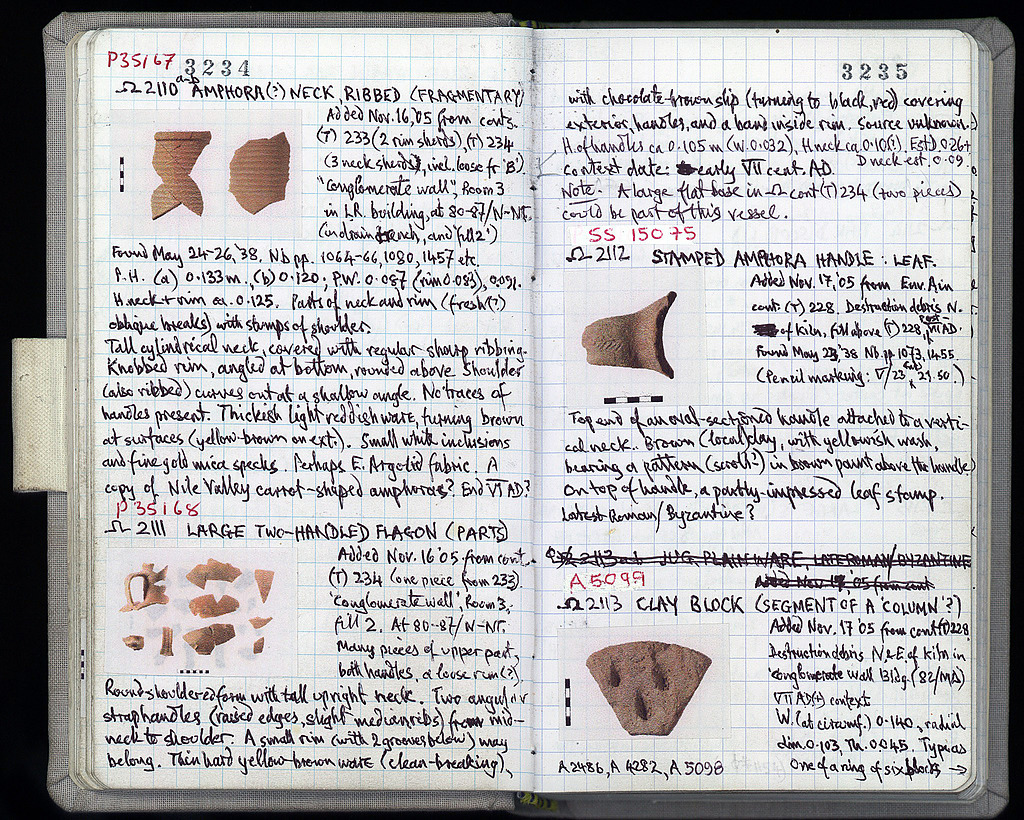 P35167
3234
Ω 2110 a+b AMPHORA(?) NECK, RIBBED (FRAGMENTARY)
Added Nov. 16,'05 from conts.
(T) 233 (2 rim sherds), (T) 234
(3 neck sherds), incl. loose fr 'B').
"Conglomerate wall", Room 3
in L.R. building, at 80-87/N-NT.
(in drain trench, and 'fill 2')
Found May 24-26,'38, Nb pp. 1064-66, 1080, 1457 etc.
P.H. (a) 0.133 m., (b) 0.120; P.W. 0.087 (rim 0.083), 0.091.
H. neck + rim ca. 0.125. Parts of neck and rim (fresh(?)
oblique breaks) with stumps of shoulder.
Tall cylindrical neck, covered with regular sharp ribbing.
Knobbed rim, angled at bottom, rounded above. Shoulder
(also ribbed) curves out at a shallow angle. No traces of
handles present. Thickish light reddish ware, turning brown
at surfaces (yellow-brown on ext.). Small white inclusions
and fine gold mica specks. Perhaps E. Argolid fabric. A
copy of Nile Valley carrot-shaped amphoras? End VI AD?
P35168
Ω 2111 LARGE TWO-HANDLED FLAGON (PARTS)
Added Nov. 16 '05 from cont.
(T) 234 (one piece from 233).
'Conglomerate wall', Room 3,
fill 2. At 80-87/N-NT.
Many pieces of upper part,
both handles, a loose rim(?).
Round-shouldered form with tall upright neck. Two angular
strap handles (raised edges, slight median ribs) from mid-
neck to shoulder. A small rim (with 2 grooves below) may
belong. Thin hard yellow-brown ware (clean-breaking),
3235
with chocolate-brown slip (turning to black, red) covering
exterior, handles, and a band inside rim. Source unknown.
H. of handles ca. 0.105 m (W. 0.032), H. neck ca. 0.10(?). Est D. 0.26+
D neck est. 0.09.
Context date: early VII cent. AD.
Note. A large flat base in Ω cont (T) 234 (two pieces)
could be part of this vessel.
SS 15075
Ω 2112 STAMPED AMPHORA HANDLE: LEAF.
Added Nov. 17,'05 from Env. A in
cont. (T) 228. Destruction debris N.
of kiln, fill above (T) 228, post VII AD.
Found May 23,'38 Nb pp 1073, 1455.
(Pencil marking: V/23 sub 29.50.)
Top end of an oval-sectioned handle attached to a verti-
cal neck. Brown (local) clay, with yellowish wash,
bearing a pattern (scroll?) in brown paint above the handle.
On top of handle, a partly-impressed leaf stamp.
Latest Roman/Byzantine?
Ω 2113 a-b JUG, PLAIN WARE, LATE ROMAN/BYZANTINE
A 5099
Added Nov 17, '05 from cont
Ω 2113 CLAY BLOCK (SEGMENT OF A 'COLUMN'?)
Added Nov. 17 '05 from cont (T) 228
Destruction debris N & E of kiln in
'conglomerate wall' Bldg. (82/MΔ)
VII AD(+) context
W. (at circumf.) 0.140, radial
dim. 0.103, Th. 0.045. Type as
A 2486, A 4282, A 5098
One of a ring of six blocks →